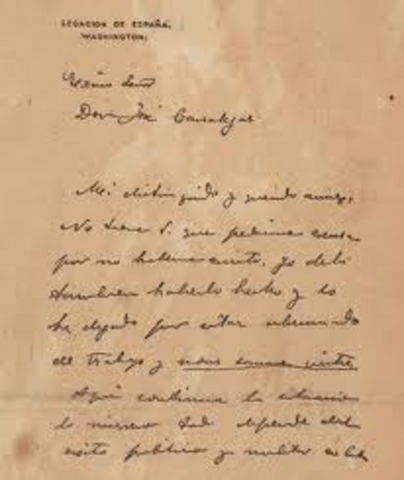 LEGACION DE ESPAÑA.
WASHINGTON.
Exmo Señor
Don José Canalejas
Mi distinguido y querido amigo:
No tiene V. que pedirme excusa
por no haberme escrito, yo debí
tambien haberlo hecho y lo
he dejado por estar abrumado
de trabajo y
Aqui continua la situacion
lo mismo. Todo depende del
exito politico y militar en Cuba